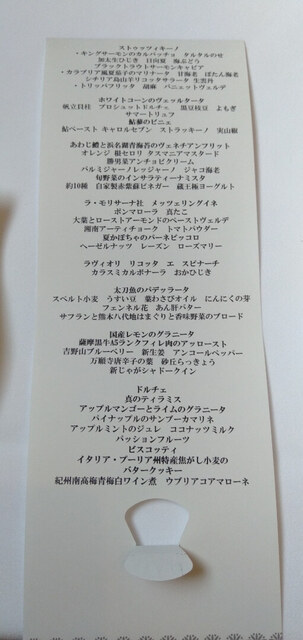 ストゥッツィキーノ
・キングサーモンのカルパッチョ　タルタルのせ
加太生ひじき　日向夏　海ぶどう
ブラックトラウトサーモンキャビア
・カラブリア風夏茄子のマリナータ　甘海老　ぼたん海老
シチリア島山羊リコッタサラータ　生雲丹
・トリッパフリッタ　胡麻　パニェットヴェルデ
ホワイトコーンのヴェッルタータ
帆立貝柱　プロシェットドルチェ　黒豆枝豆　よもぎ
サマートリュフ
鮎蓼のビニェ
鮎ペースト キャロルセブン　ストラッキーノ　実山椒
あわじ鱧と浜名湖青海苔のヴェネチアンフリット
オレンジ 根セロリ タスマニアマスタード
勝男菜アンチョビクリーム
パルミジャーノレッジャーノ　ジャコ海老
旬野菜のインサラティーナミスタ
約10種　自家製赤紫蘇ビネガー　蔵王極ヨーグルト
ラ・モリサーナ社　メッツェリングイネ
ポンマローラ　真たこ
大葉とローストアーモンドのペーストヴェルデ
湘南アーティチョーク　トマトパウダー
夏かぼちゃのバーネピッコロ
ヘーゼルナッツ　レーズン　ローズマリー
ラヴィオリ　リコッタ　エ　スピナーチ
カラスミカルボナーラ　おかひじき
太刀魚のパデッラータ
スペルト小麦　うすい豆　葉わさびオイル　にんにくの芽
フェンネル花　あん肝バター
サフランと熊本八代地はまぐりと香味野菜のブロード
国産レモンのグラニータ
薩摩黒牛A5ランクフィレ肉のアッロースト
吉野山ブルーベリー　新生姜　アンコールペッパー
万願寺唐辛子の葉　砂丘らっきょう
新じゃがシャドークイン
ドルチェ
真のティラミス
アップルマンゴーとライムのグラニータ
パイナップルのサンブーカマリネ
アップルミントのジュレ　ココナッツミルク
パッションフルーツ
ビスコッティ
イタリア・プーリア州特産焦がし小麦の
バタークッキー
紀州南高梅青梅白ワイン煮　ウブリアコアマローネ